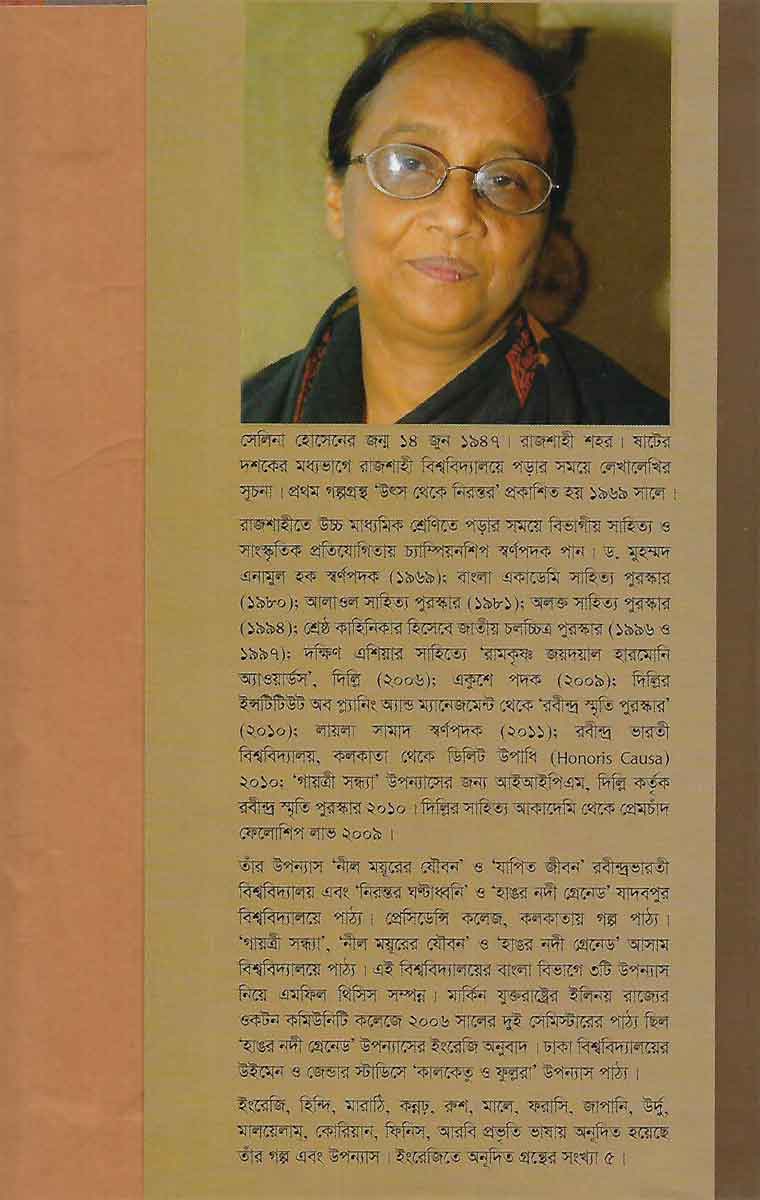 সেলিনা হোসেনের জন্ম ১৪ জুন ১৯৪৭। রাজশাহী শহর। ষাটের
দশকের মধ্যভাগে রাজশাহী বিশ্ববিদ্যালয়ে পড়ার সময়ে লেখালেখির
সূচনা। প্রথম গল্পগ্রন্থ ‘উৎস থেকে নিরন্তর’ প্রকাশিত হয় ১৯৬৯ সালে।
রাজশাহীতে উচ্চ মাধ্যমিক শ্রেণিতে পড়ার সময়ে বিভাগীয় সাহিত্য ও
সাংস্কৃতিক প্রতিযোগিতায় চ্যাম্পিয়নশিপ স্বর্ণপদক পান। ড. মুহম্মদ
এনামুল হক স্বর্ণপদক (১৯৬৯); বাংলা একাডেমি সাহিত্য পুরস্কার
(১৯৮০); আলাওল সাহিত্য পুরস্কার (১৯৮১); অলক্ত সাহিত্য পুরস্কার
(১৯৯৪); শ্রেষ্ঠ কাহিনিকার হিসেবে জাতীয় চলচ্চিত্র পুরস্কার (১৯৯৬ ও
১৯৯৭); দক্ষিণ এশিয়ার সাহিত্যে ‘রামকৃষ্ণ জয়দয়াল হারমোনি
অ্যাওয়ার্ডস’, দিল্লি (২০০৬); একুশে পদক (২০০৯); দিল্লির
ইন্সটিটিউট অব প্ল্যানিং অ্যান্ড ম্যানেজমেন্ট থেকে ‘রবীন্দ্র স্মৃতি পুরস্কার’
(২০১০); লায়লা সামাদ স্বর্ণপদক (২০১১); রবীন্দ্র ভারতী
বিশ্ববিদ্যালয়, কলকাতা থেকে ডিলিট উপাধি (Honoris Causa)
২০১০; ‘গায়ত্রী সন্ধ্যা’ উপন্যাসের জন্য আইআইপিএম, দিল্লি কর্তৃক
রবীন্দ্র স্মৃতি পুরস্কার ২০১০। দিল্লির সাহিত্য আকাদেমি থেকে প্রেমচাঁদ
ফেলোশিপ লাভ ২০০৯।
তাঁর উপন্যাস ‘নীল ময়ূরের যৌবন’ ও ‘যাপিত জীবন’ রবীন্দ্রভারতী
বিশ্ববিদ্যালয় এবং ‘নিরন্তর ঘণ্টাধ্বনি’ ও ‘হাঙর নদী গ্রেনেড’ যাদবপুর
বিশ্ববিদ্যালয়ে পাঠ্য। প্রেসিডেন্সি কলেজ, কলকাতায় গল্প পাঠ্য।
‘গায়ত্রী সন্ধ্যা’, ‘নীল ময়ূরের যৌবন’ ও ‘হাঙর নদী গ্রেনেড’ আসাম
বিশ্ববিদ্যালয়ে পাঠ্য। এই বিশ্ববিদ্যালয়ের বাংলা বিভাগে ৩টি উপন্যাস
নিয়ে এমফিল থিসিস সম্পন্ন। মার্কিন যুক্তরাষ্ট্রের ইলিনয় রাজ্যের
ওকটন কমিউনিটি কলেজে ২০০৬ সালের দুই সেমিস্টারের পাঠ্য ছিল
‘হাঙর নদী গ্রেনেড’ উপন্যাসের ইংরেজি অনুবাদ। ঢাকা বিশ্ববিদ্যালয়ের
উইমেন ও জেন্ডার স্টাডিসে ‘কালকেতু ও ফুল্লরা’ উপন্যাস পাঠ্য।
ইংরেজি, হিন্দি, মারাঠি, কন্নঢ়, রুশ, মালে, ফরাসি, জাপানি, উর্দু,
মালয়েলাম, কোরিয়ান, ফিনিস, আরবি প্রভৃতি ভাষায় অনূদিত হয়েছে
তাঁর গল্প এবং উপন্যাস। ইংরেজিতে অনূদিত গ্রন্থের সংখ্যা ৫।